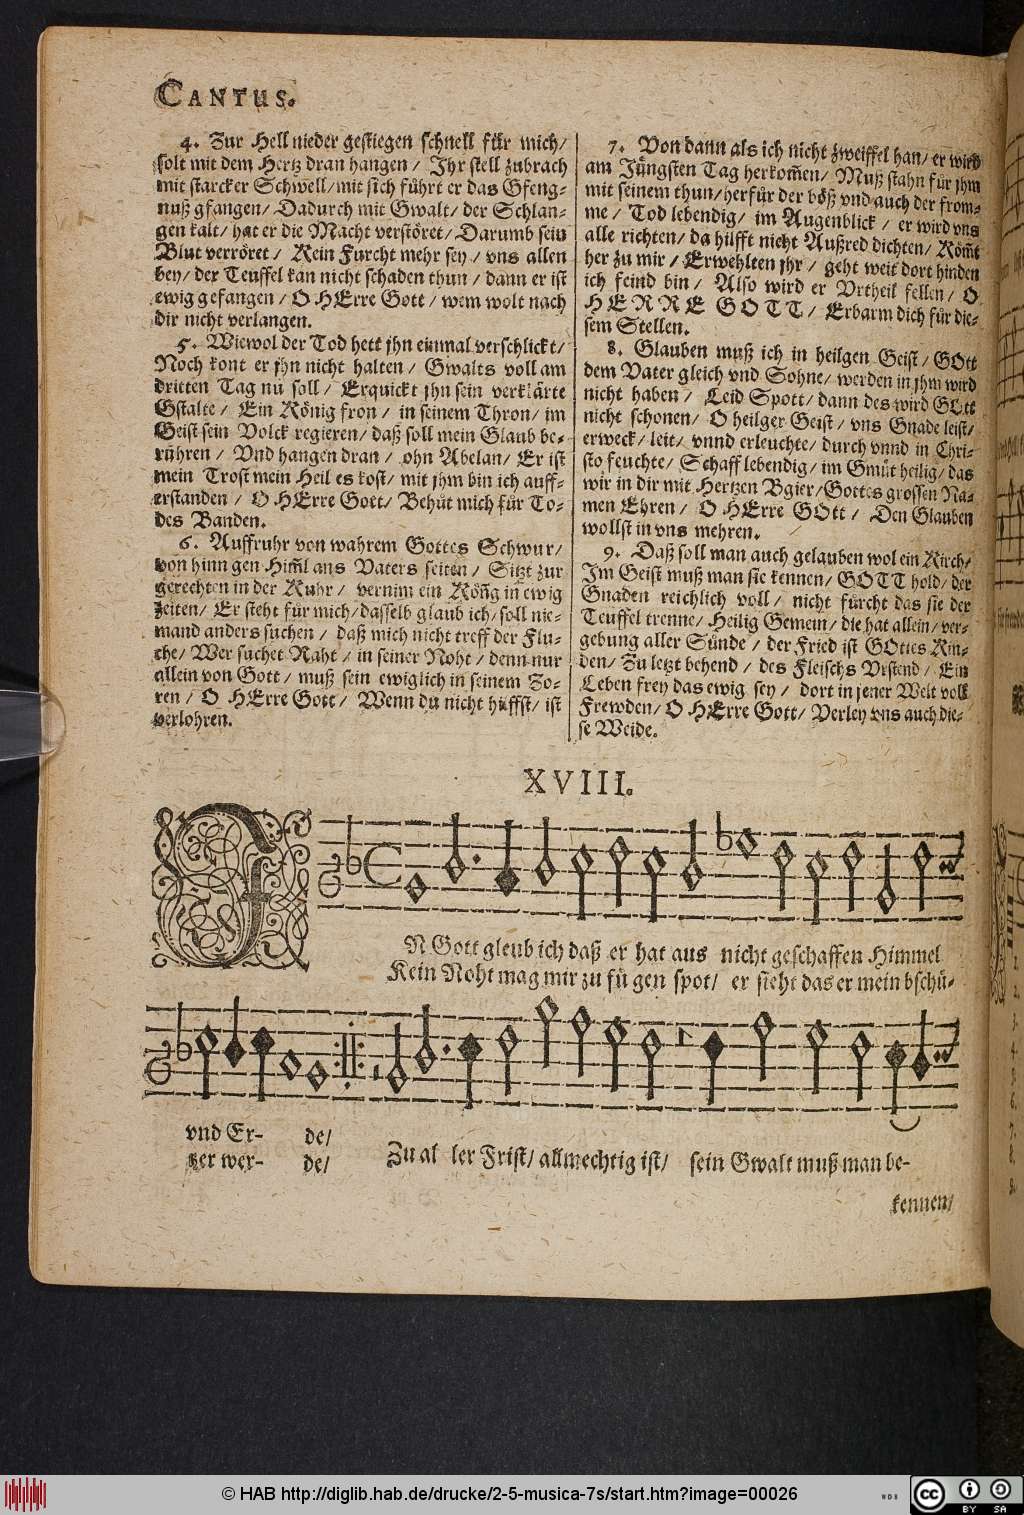 CANTUS.
4. Zur Hell nieder gestiegen schnell für mich/
solt mit dem Hertz dran hangen / Ihr stell zubrach
mit starcker Schwell/mit sich führt er das Gfeng-
nuß gfangen/ Dadurch mit Gwalt/ der Schlan-
gen kalt/ hat er die Macht verstöret/ Darumb sein
Blut verröret / Kein Furcht mehr sey / vns allen
bey/ der Teuffel kan nicht schaden thun / dann er ist
ewig gefangen / O HErre Gott / wem wolt nach
dir nicht verlangen.
5. Wiewol der Tod hett jhn einmal verschlickt/
Noch kont er jhn nicht halten / Gwalts voll am
dritten Tag nu soll / Erquickt jhn sein verklärte
Gstalte / Ein König fron / in seinem Thron/ im
Geist sein Volck regieren/ daß soll mein Glaub be-
rühren / Vnd hangen dran / ohn Abelan/ Er ist
mein Trost mein Heil es kost/ mit jhm bin ich auff-
erstanden / O HErre Gott/ Behüt mich für To-
des Banden.
6. Auffruhr von wahrem Gottes Schwur/
von hinn gen Himl ans Vaters seiten / Sitzt zur
gerechten in der Ruhr / vernim ein Köng in ewig
zeiten/ Er steht für mich/dasselb glaub ich/soll nie-
mand anders suchen / daß mich nicht treff der Flu-
che/ Wer suchet Raht / in seiner Noht / denn nur
allein von Gott / muß sein ewiglich in seinem Zo-
ren / O HErre Gott / Wenn du nicht hilffst/ ist
verlohren.
7. Von dann als ich nicht zweiffel han/ er wird
am Jüngsten Tag herkom̄en/ Muß stahn für jhm
mit seinem thun/herfür der böß vnd auch der from-
me / Tod lebendig/ im Augenblick / er wird vns
alle richten/ da hilfft nicht Außred dichten/ Kōmt
her zu mir / Erwehlten jhr / geht weit dort hinden
ich feind bin / Also wird er Vrtheil fellen/ O
HERRE GOTT/ Erbarm dich für die-
sem Stellen.
8. Glauben muß ich in heilgen Geist/ GOtt
dem Vater gleich vnd Sohne/ werden in jhm wird
nicht haben / Leid Spott/ dann des wird GOtt
nicht schonen/ O heilger Geist/ vns Gnade leist/
erweck/ leit/ vnnd erleuchte/ durch vnnd in Chri-
sto feuchte/ Schaff lebendig/ im Gmüt heilig/ das
wir in dir mit Hertzen Bgier/Gottes grossen Na-
men Ehren / O HErre GOtt / Den Glauben
wollst in vns mehren.
9. Daß soll man auch gelauben wol ein Kirch/
Im Geist muß man sie kennen/ GOTT hold/ der
Gnaden reichlich voll / nicht fürcht das sie der
Teuffel trenne/ Heilig Gemein/ die hat allein/ ver-
gebung aller Sünde / der Fried ist GOttes Kin-
den/ Zu letzt behend / des Fleischs Vrstend / Ein
Leben frey das ewig sey / dort in jener Welt voll
Frewden/ O HErre Gott/ Verley vns auch die-
se Weide.
XVIII.
IN Gott gleub ich daß er hat aus nicht geschaffen Himmel
Kein Noht mag mir zu fü gen spot/ er sieht das er mein bschü-
vnd Er- de/
tzer wer- de/ Zu al ler Frist/ allmechtig ist/ sein Gwalt muß man be-
kennen/
© HAB http://diglib.hab.de/drucke/2-5-musica-7s/start.htm?image=00026
WDB
cc BY SA